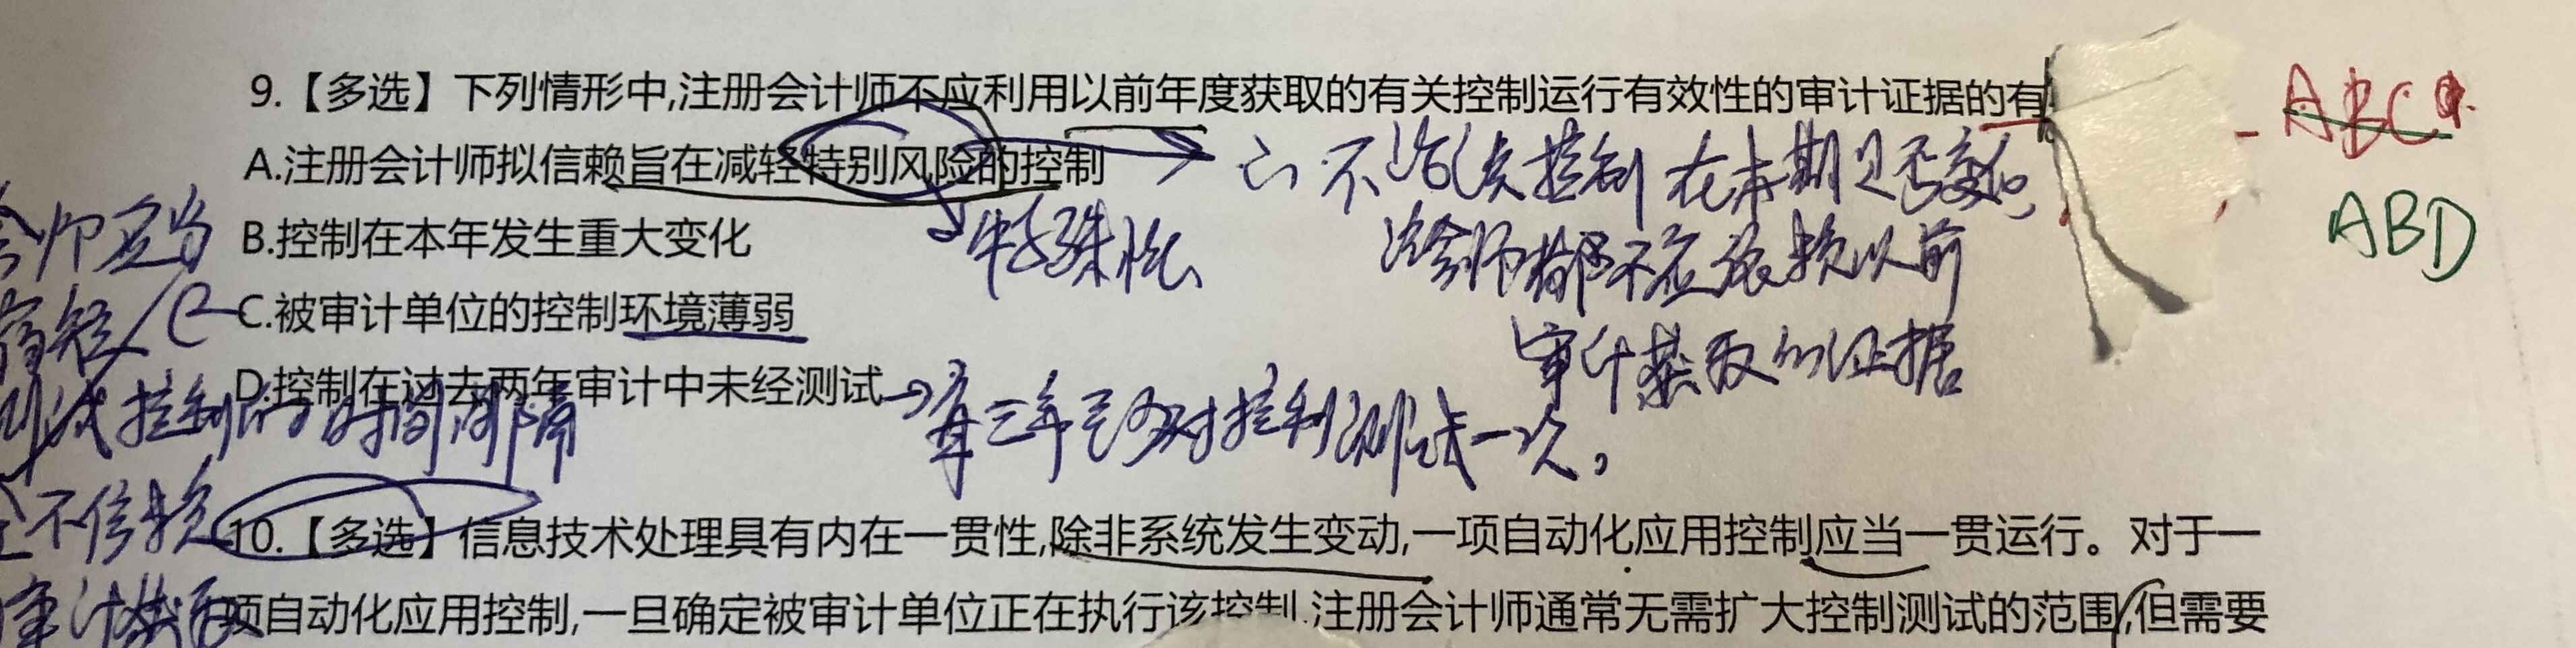 9.【多选】下列情形中,注册会计师不应利用以前年度获取的有关控制运行有效性的审计证据的有
ABD
A.注册会计师拟信赖旨在减轻特别风险的控制
不论该控制在本期是否变化,
特殊性
注会师都不应依赖以前
审计获取的证据
B.控制在本年发生重大变化
C.被审计单位的控制环境薄弱
D.控制在过去两年审计中未经测试
每三年至少对控制测试一次。
会师应当
缩短
测试控制的时间间隔
不信赖
审计获取
10.【多选】信息技术处理具有内在一贯性,除非系统发生变动,一项自动化应用控制应当一贯运行。对于一
项自动化应用控制,一旦确定被审计单位正在执行该控制,注册会计师通常无需扩大控制测试的范围,但需要